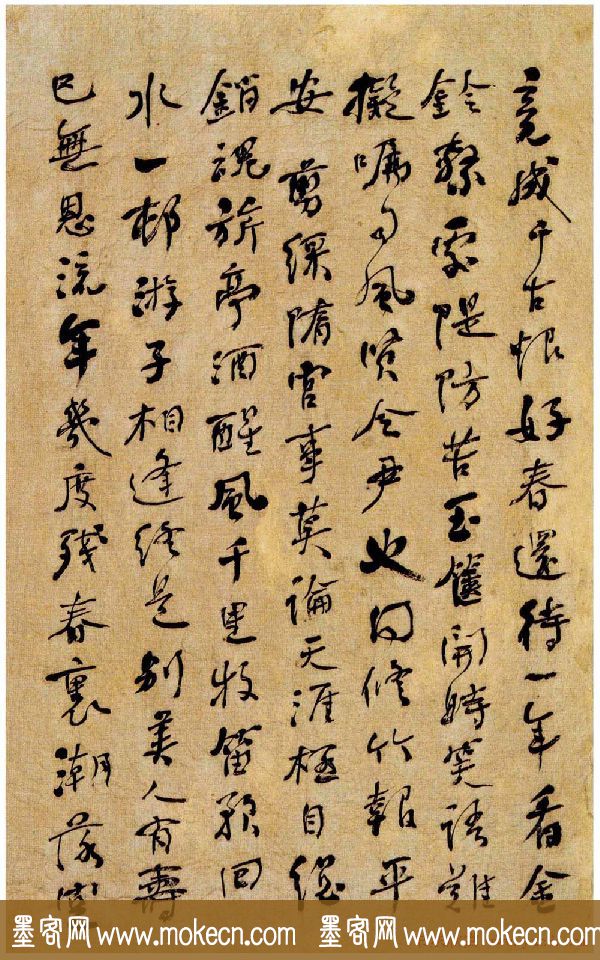 竟成千古恨好春還待一年看金
鈴繫處隄防苦玉開時笑語難
擬囑司風賢令尹也同修竹報平
安 剪綵隋宮事莫論天涯極目總
銷魂旗亭酒醒風千里牧笛歌回
水一邨游子相逢終是別美人有壽
已無恩流年幾度殘春裏潮落
墨客网 www.mokecn.com 墨客网 www.mokecn.com